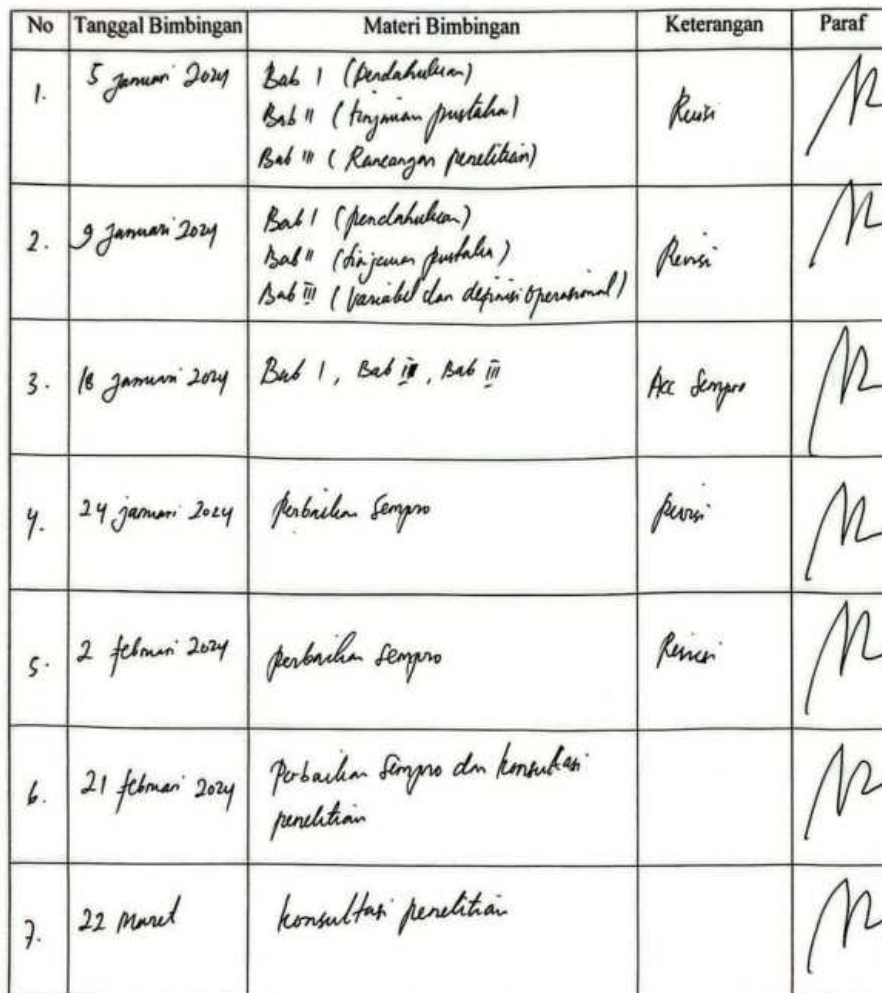 No Tanggal Bimbingan Materi Bimbingan Keterangan Paraf
1. 5 Januari 2024 Bab I (pendahuluan)
Bab II (tinjauan pustaka)
Bab III (Rancangan penelitian)
Revisi
2. 9 Januari 2024 Bab I (pendahuluan)
Bab II (tinjauan pustaka)
Bab III (Variabel dan definisi operasional)
Revisi
3. 18 Januari 2024 Bab I, Bab II, Bab III Acc Sempro
4. 24 januari 2024 Perbaikan Sempro Revisi
5. 2 februari 2024 perbaikan Sempro Revisi
6. 21 februari 2024 Perbaikan Sempro dan konsultasi
penelitian
7. 22 Maret konsultasi penelitian